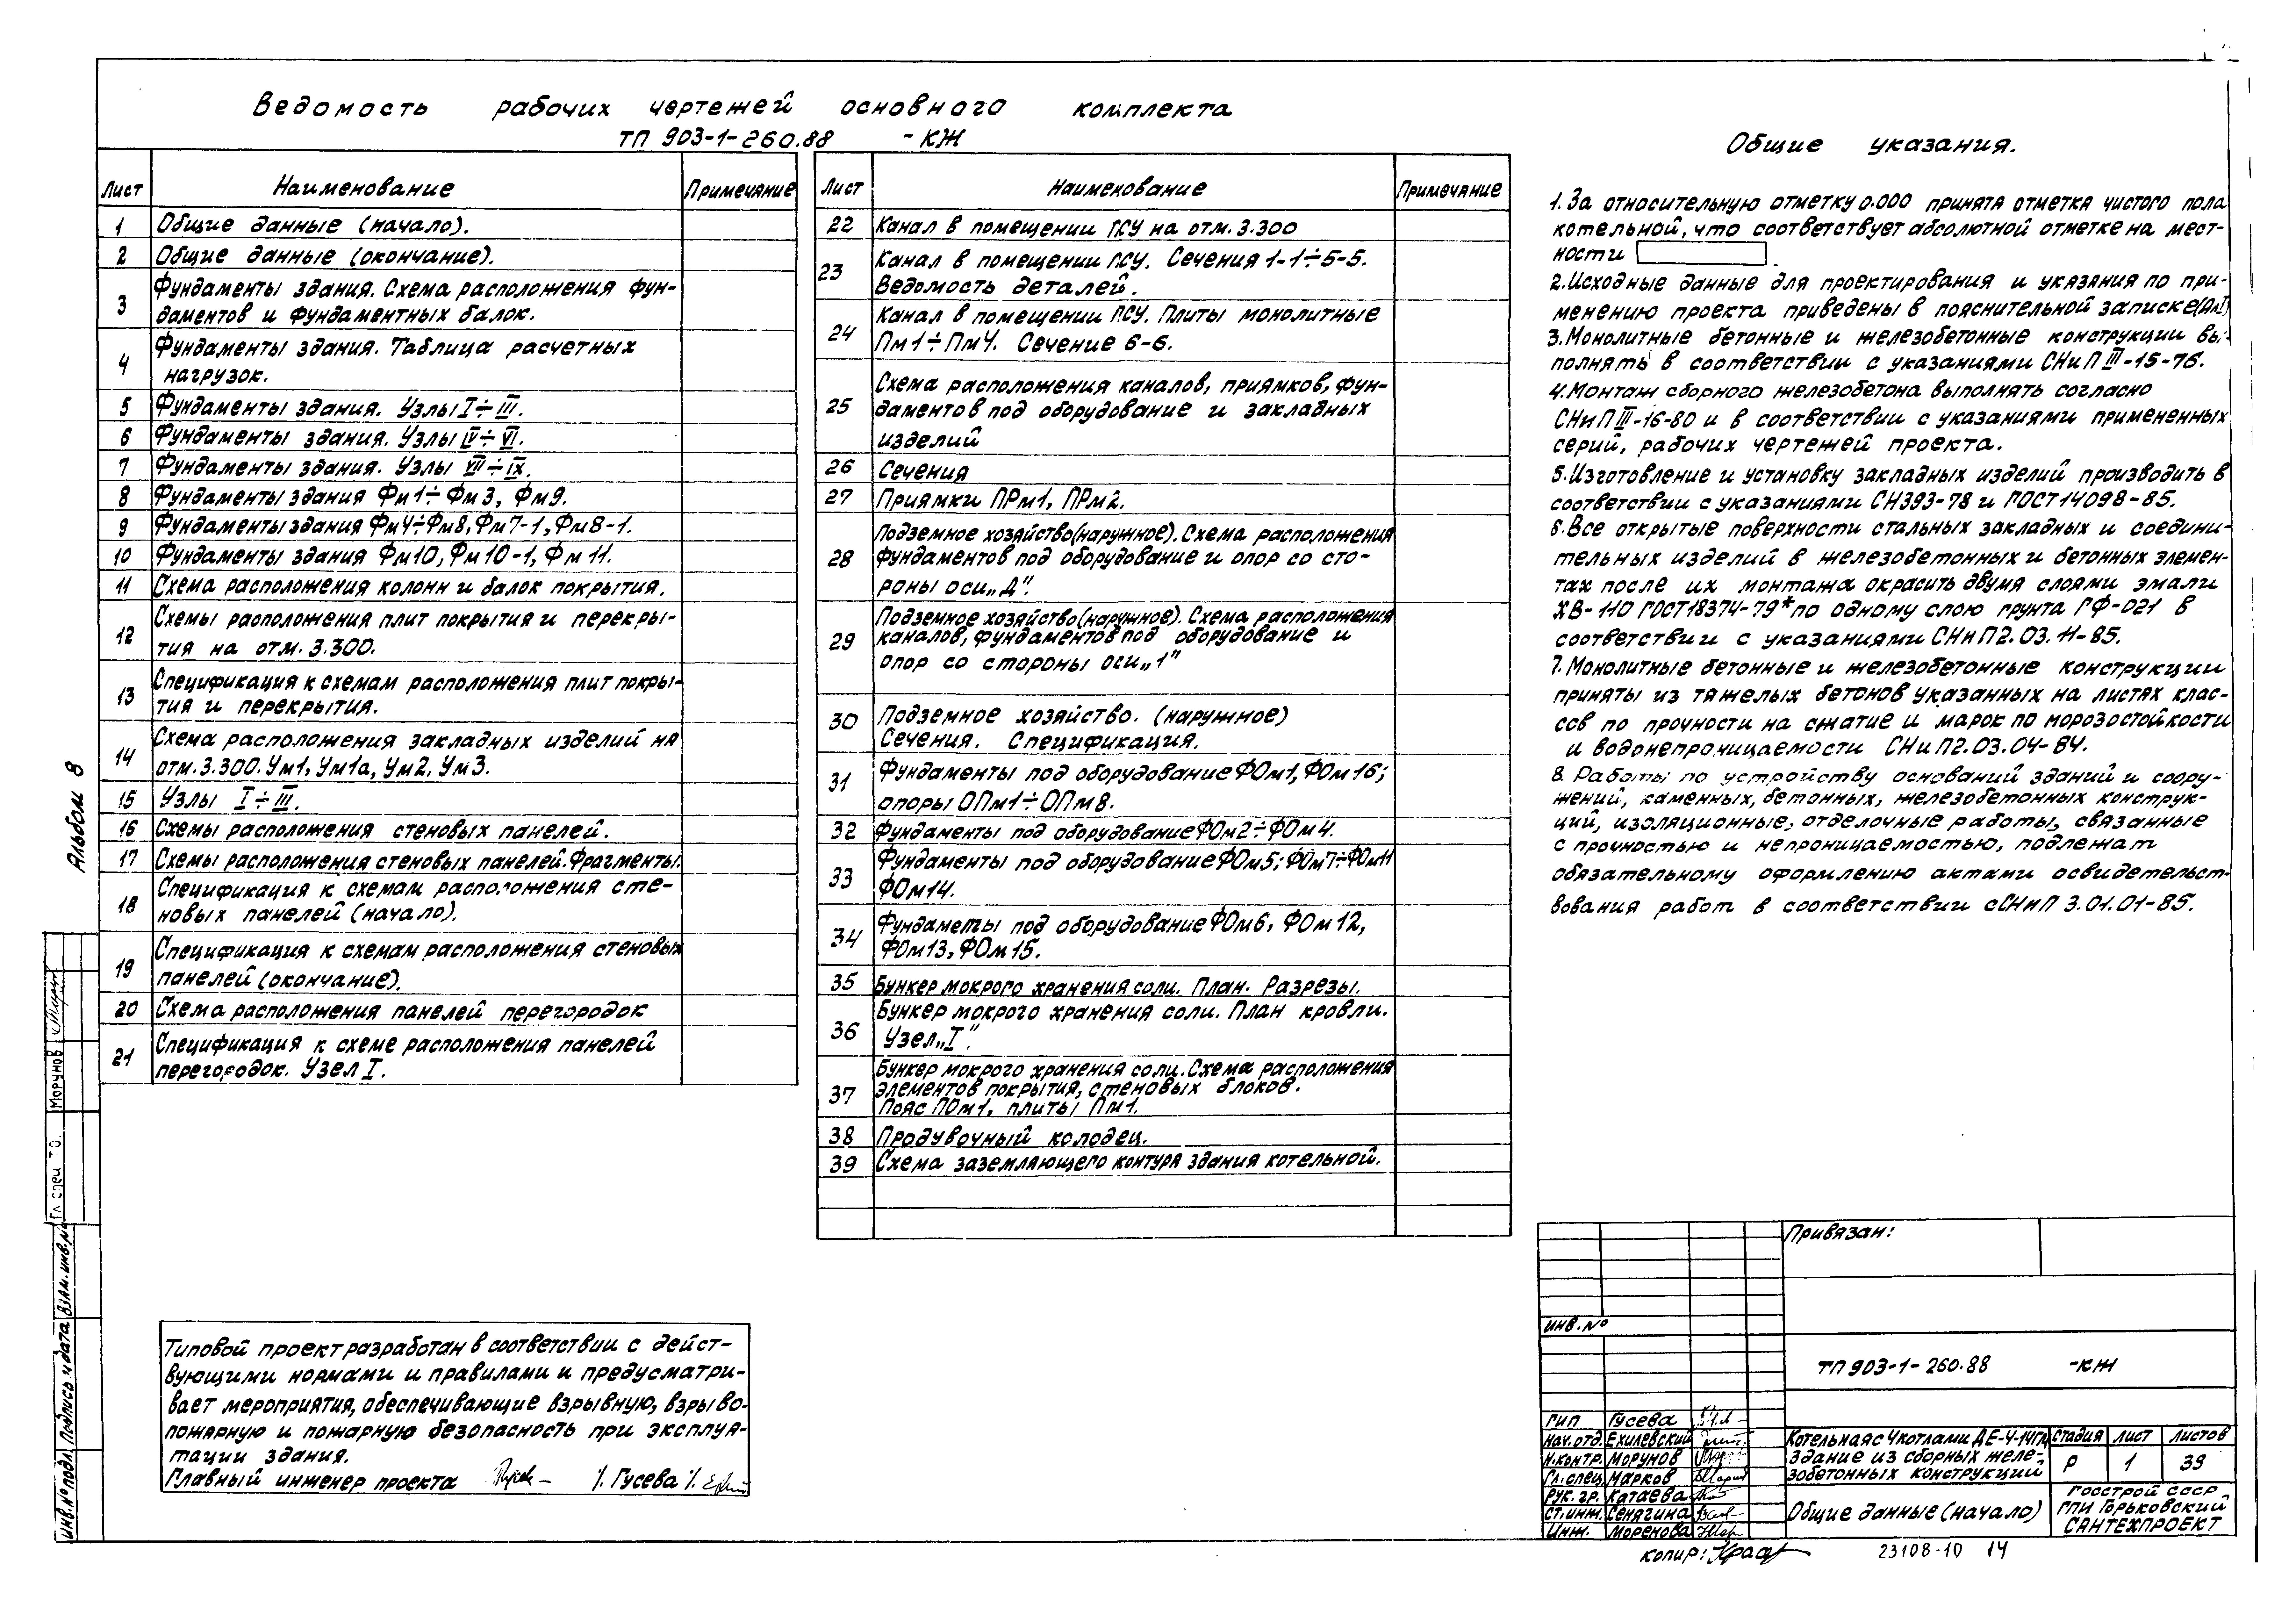 Ведомость рабочих чертежей основного комплекта
ТП 903-1-260.88 -КЖ
Лист Наименование Примечание
1 Общие данные (начало).
2 Общие данные (окончание).
3 Фундаменты здания. Схема расположения фун-
даментов и фундаментных балок.
4 Фундаменты здания. Таблица расчетных
нагрузок.
5 Фундаменты здания. Узлы I÷III.
6 Фундаменты здания. Узлы IV÷VI.
7 Фундаменты здания. Узлы VII÷IX.
8 Фундаменты здания Фм1÷Фм3, Фм9.
9 Фундаменты здания Фм4÷Фм8, Фм7-1, Фм8-1.
10 Фундаменты здания Фм10, Фм10-1, Фм11.
11 Схема расположения колонн и балок покрытия.
12 Схемы расположения плит покрытия и перекры-
тия на отм. 3.300.
13 Спецификация к схемам расположения плит покры-
тия и перекрытия.
14 Схема расположения закладных изделий на
отм. 3.300. Ум1, Ум1а, Ум2, Ум3.
15 Узлы I÷III.
16 Схемы расположения стеновых панелей.
17 Схемы расположения стеновых панелей. Фрагменты.
18 Спецификация к схемам расположения сте-
новых панелей (начало).
19 Спецификация к схемам расположения стеновых
панелей (окончание).
20 Схема расположения панелей перегородок
21 Спецификация к схеме расположения панелей
перегородок. Узел I.
Лист Наименование Примечание
22 Канал в помещении ПСУ на отм. 3.300
23 Канал в помещении ПСУ. Сечения 1-1÷5-5.
Ведомость деталей.
24 Канал в помещении ПСУ. Плиты монолитные
Пм1÷Пм4. Сечение 6-6.
25 Схема расположения каналов, приямков, фун-
даментов под оборудование и закладных
изделий
26 Сечения
27 Приямки ПРм1, ПРм2.
28 Подземное хозяйство (наружное). Схема расположения
фундаментов под оборудование и опор со сто-
роны оси „Д".
29 Подземное хозяйство (наружное). Схема расположения
каналов, фундаментов под оборудование и
опор со стороны оси „1"
30 Подземное хозяйство. (наружное)
Сечения. Спецификация.
31 Фундаменты под оборудование ФОм1, ФОм16;
опоры ОПм1÷ОПм8.
32 Фундаменты под оборудование ФОм2÷ФОм4.
33 Фундаменты под оборудование ФОм5; ФОм7÷ФОм11
ФОм14.
34 Фундаметы под оборудование ФОм6, ФОм12,
ФОм13, ФОм15.
35 Бункер мокрого хранения соли. План. Разрезы.
36 Бункер мокрого хранения соли. План кровли.
Узел „I".
37 Бункер мокрого хранения соли. Схема расположения
элементов покрытия, стеновых блоков.
Пояс ПОм1, плиты Пм1.
38 Продувочный колодец.
39 Схема заземляющего контура здания котельной.
Общие указания.
1. За относительную отметку 0.000 принята отметка чистого пола
котельной, что соответствует абсолютной отметке на мест-
ности .
2. Исходные данные для проектирования и указания по при-
менению проекта приведены в пояснительной записке
3. Монолитные бетонные и железобетонные конструкции вы-
полнять в соответствии с указаниями СНиП III-15-76.
4. Монтаж сборного железобетона выполнять согласно
СНиП III-16-80 и в соответствии с указаниями примененных
серий, рабочих чертежей проекта.
5. Изготовление и установку закладных изделий производить в
соответствии с указаниями СН393-78 и ГОСТ 14098-85.
6. Все открытые поверхности стальных закладных и соедини-
тельных изделий в железобетонных и бетонных элемен-
тах после их монтажа окрасить двумя слоями эмали
ХВ-110 ГОСТ 18374-79* по одному слою грунта ГФ-021 в
соответствии с указаниями СНиП 2.03.11-85.
7. Монолитные бетонные и железобетонные конструкции
приняты из тяжелых бетонов указанных на листах клас-
сов по прочности на сжатие и марок по морозостойкости
и водонепроницаемости СНиП2.03.04-84.
8. Работы по устройству оснований зданий и соору-
жений, каменных, бетонных, железобетонных конструк-
ций, изоляционные, отделочные работы, связанные
с прочностью и непроницаемостью, подлежат
обязательному оформлению актами освидетельст-
вования работ в соответствии с СНиП 3.01.01-85.
Альбом 8
Гл. спец. Т.О. Морунов
Инв.№ подл. Подпись и дата Взам. инв.№
Типовой проект разработан в соответствии с дейст-
вующими нормами и правилами и предусматри-
вает мероприятия, обеспечивающие взрывную, взрыво-
пожарную и пожарную безопасность при эксплуа-
тации здания.
Главный инженер проекта /. Гусева /.
Привязан:
Инв.№
ТП 903-1-260.88 -КЖ
ГИП Гусева
Нач. отд. Ехилевский
Н.контр. Морунов
Гл. спец. Марков
Рук. гр. Катаева
Ст. инж. Сенягина
Инж. Моренова
Котельная с 4 котлами ДЕ-4-14ГМ
Здание из сборных желе-
зобетонных конструкций
Стадия Лист Листов
Р 1 39
Общие данные (начало)
Госстрой СССР
ГПИ Горьковский
САНТЕХПРОЕКТ
Копир:
23108-10 14